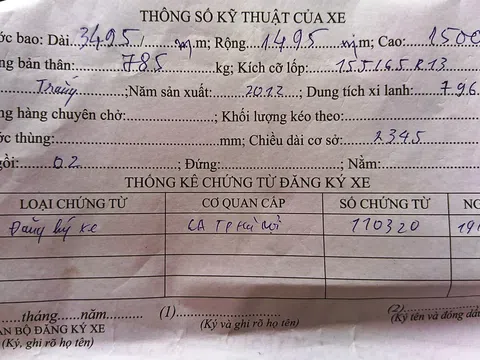 THÔNG SỐ KỸ THUẬT CỦA XE
ớc bao: Dài 3495 m.m; Rộng 1495 m.m; Cao: 1500
ng bản thân: 785 kg; Kích cỡ lốp: 155/65 R13
Trắng ;Năm sản xuất: 2012 ; Dung tích xi lanh: 796
ng hàng chuyên chở: ; Khối lượng kéo theo:
ớc thùng: mm; Chiều dài cơ sở: 2345
gồi: 02 ; Đứng: ; Nằm:
THỐNG KÊ CHỨNG TỪ ĐĂNG KÝ XE
LOẠI CHỨNG TỪ CƠ QUAN CẤP SỐ CHỨNG TỪ NG
Đăng ký xe CA TP Hà Nội 110320 191
tháng năm (1) (2)
ÁN BỘ ĐĂNG KÝ XE (Ký và ghi rõ họ tên) (Ký tên và đóng dấu
(Ký, ghi rõ họ tên)